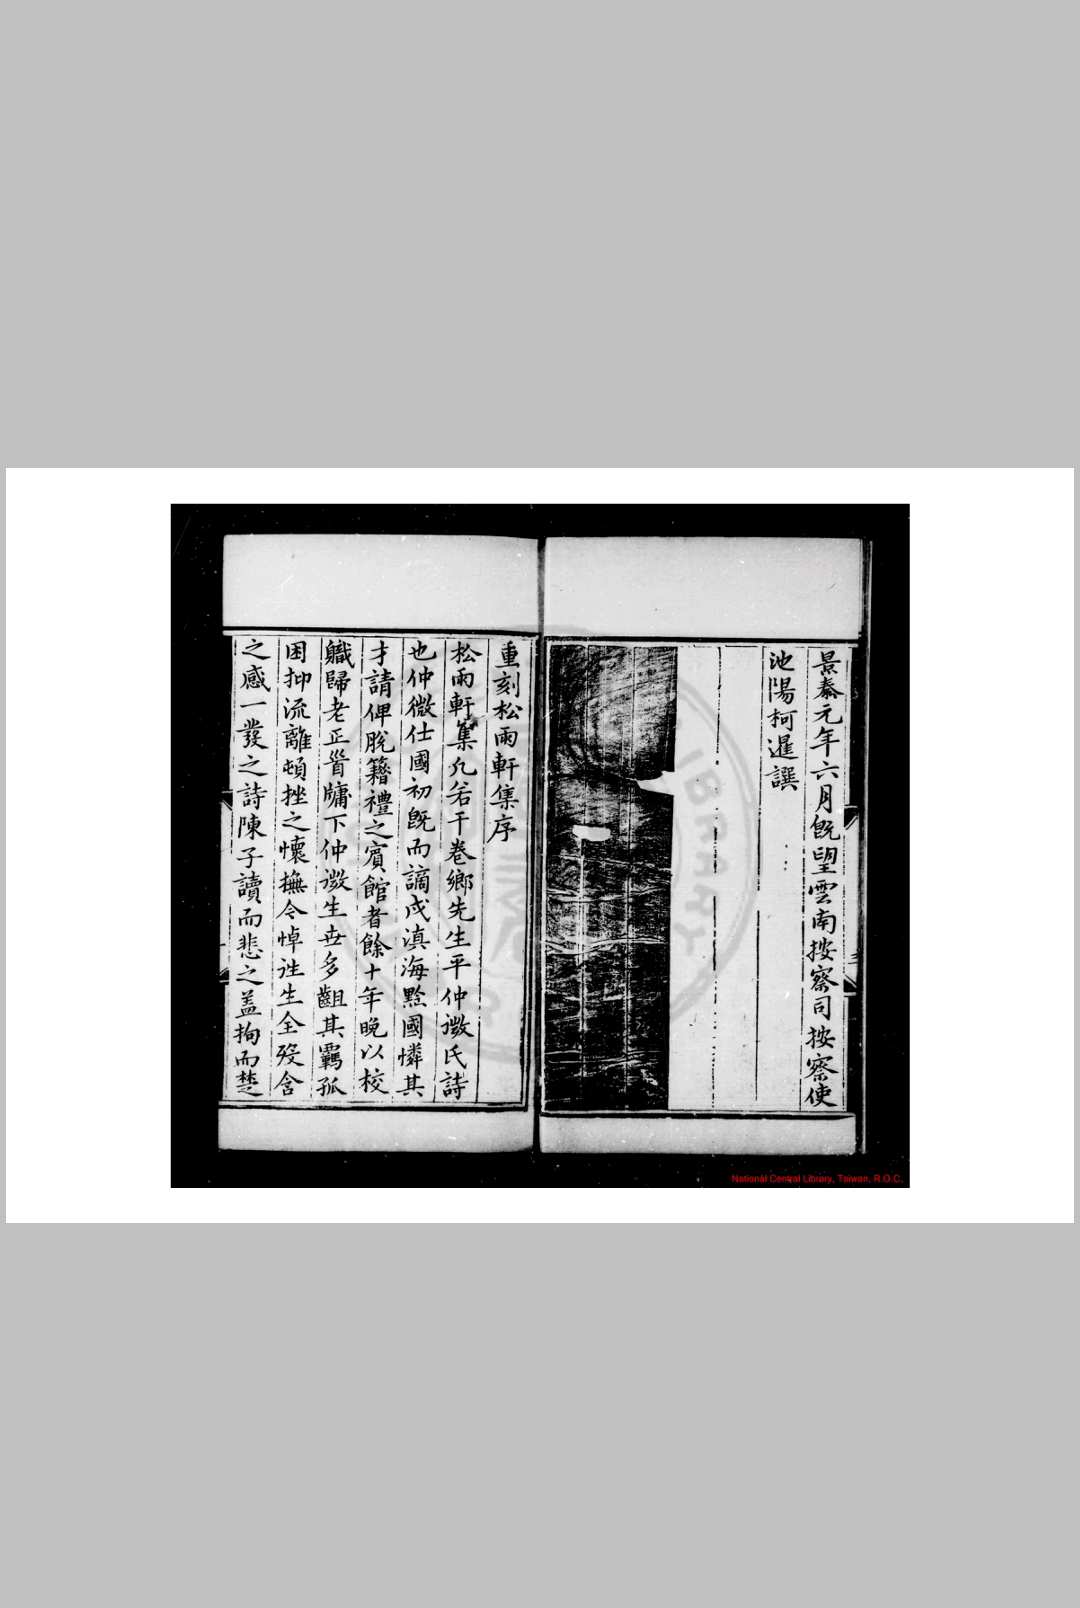 景泰元年六月旣望雲南按察司按察使
池陽柯暹譔
重刻松雨軒集序
松雨軒集凡若干卷鄉先生平仲微氏詩
也仲微仕國初旣而謫戍滇海黔國憐其
才請俾脫籍禮之賓館者餘十年晚以校
職歸老正晉牗下仲微生世多齟其羈孤
困抑流離頓挫之懷撫今悼迬生全歿含
之感一發之詩陳子讀而悲之蓋拘而楚
National Central Library, Taiwan, R.O.C.